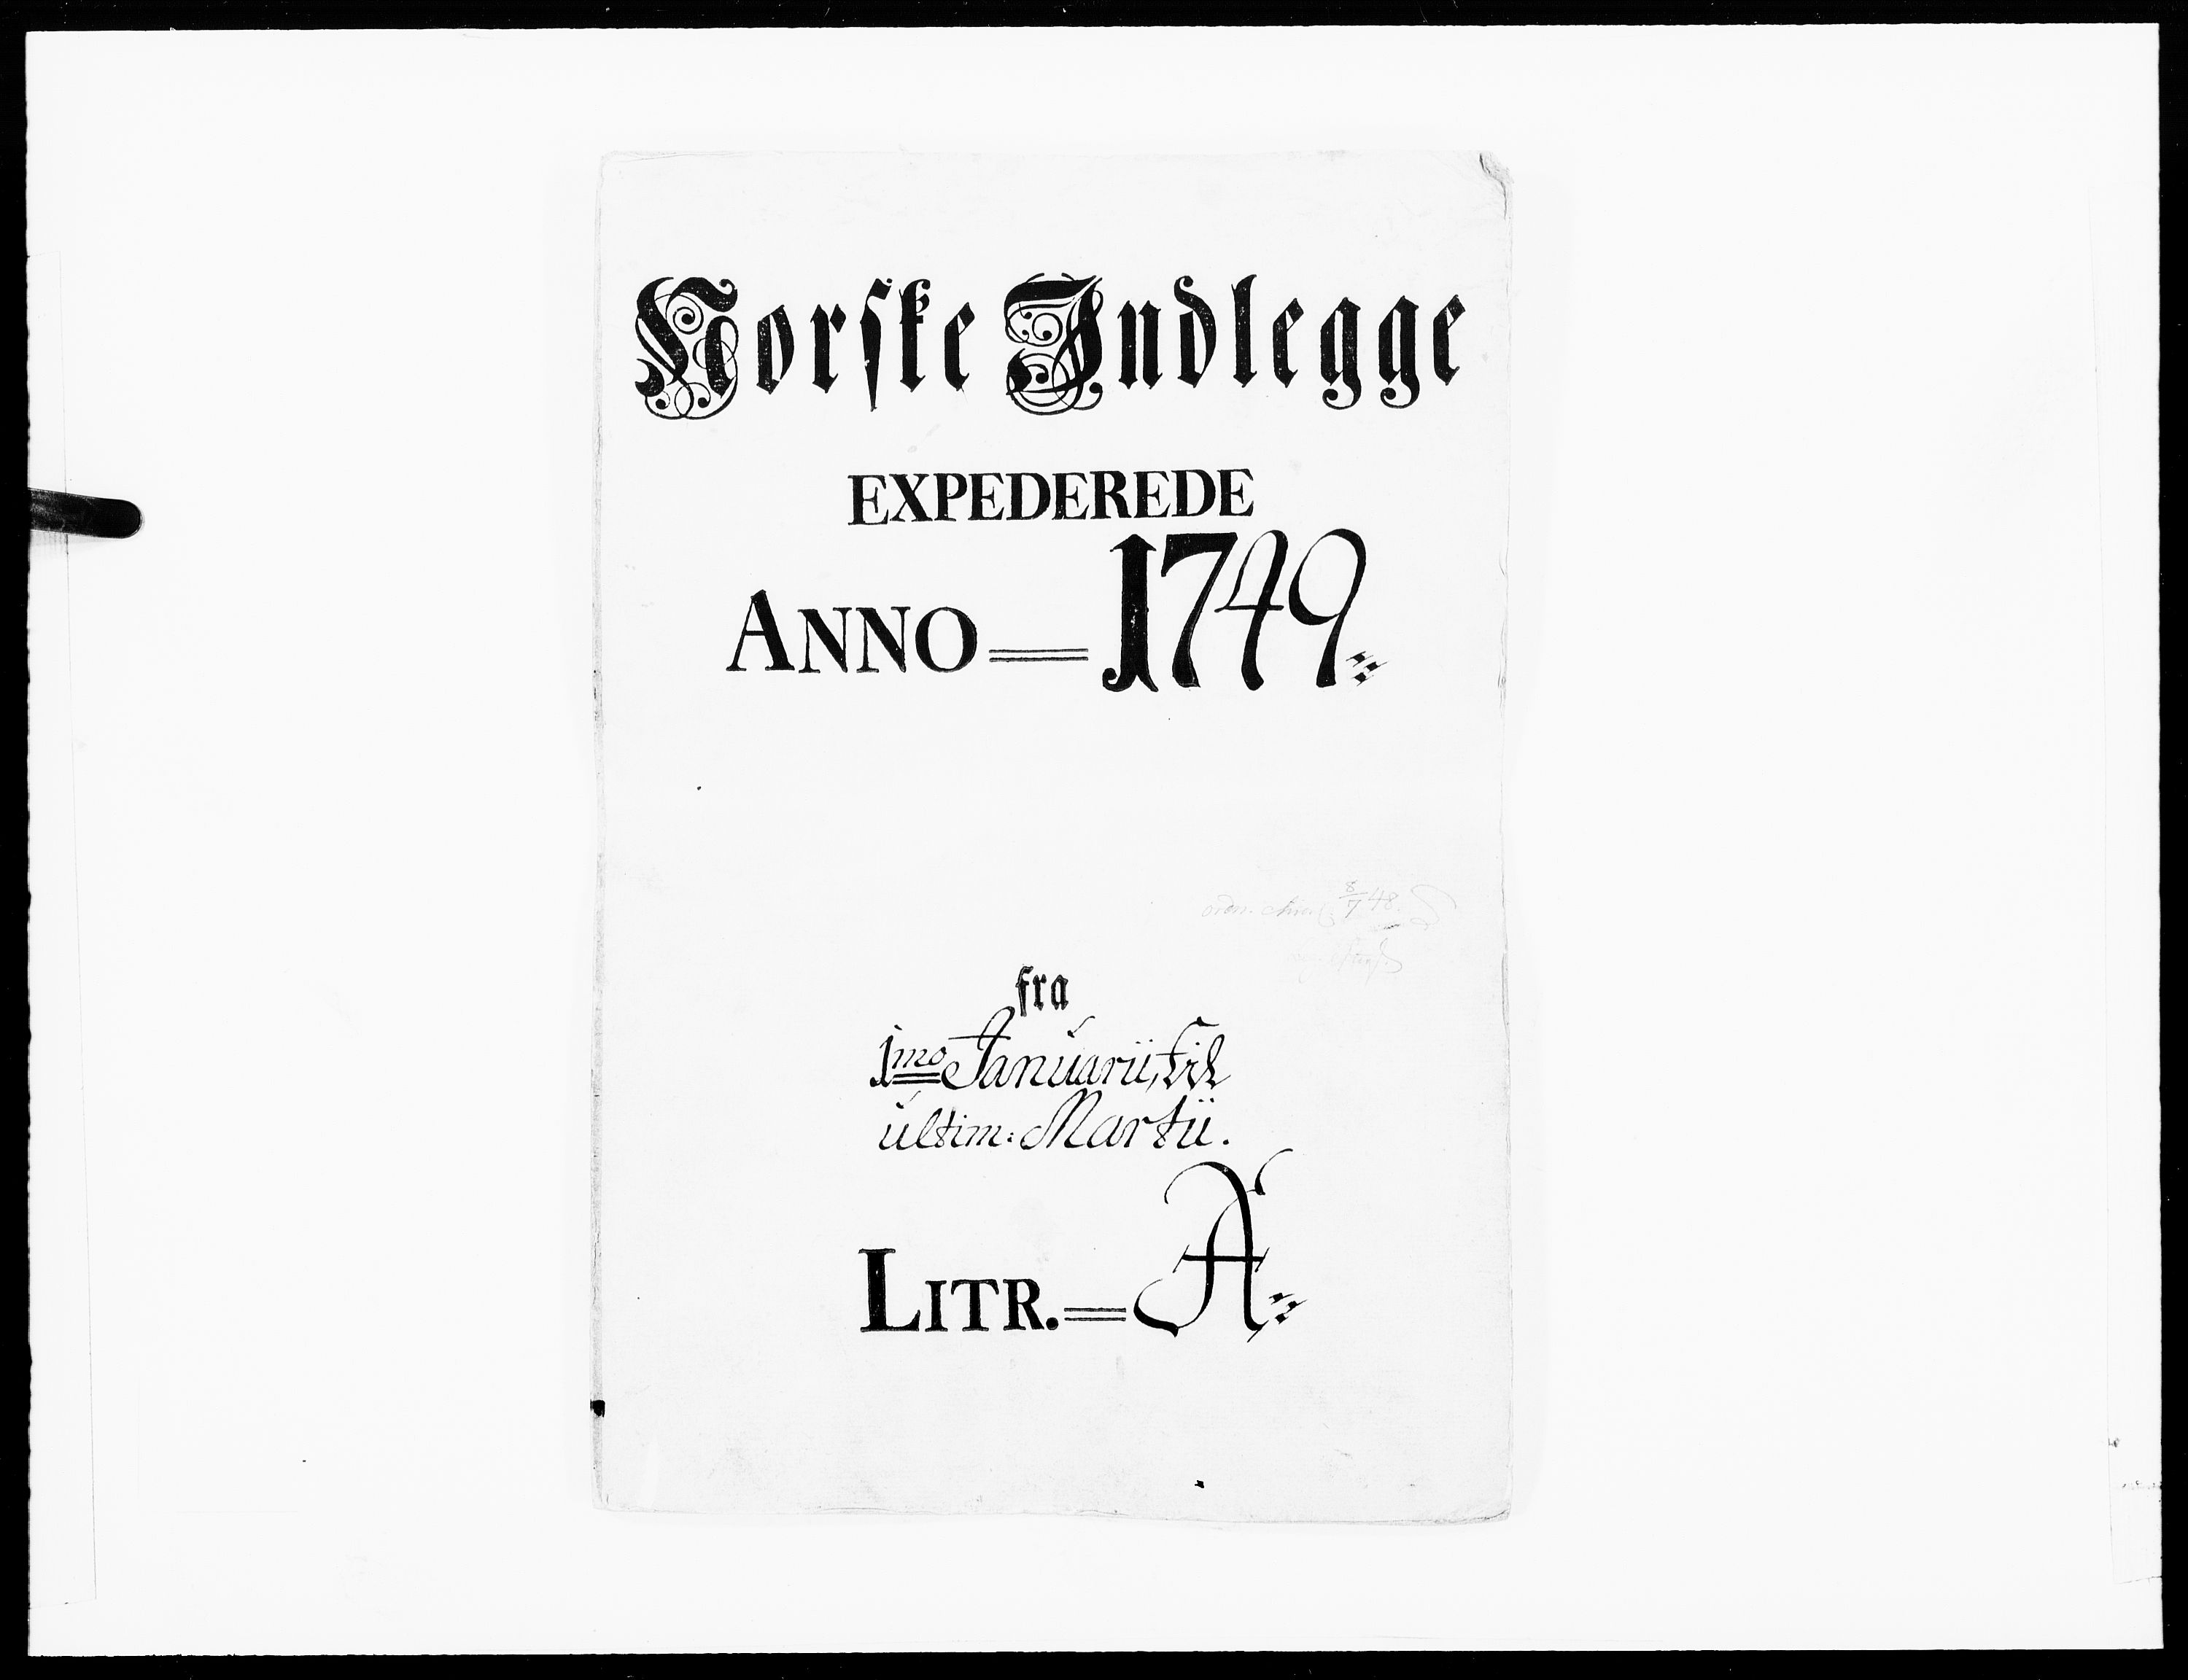 Norske Indlegge
EXPEDEREDE
ANNO = 1749.
8/7 48.
fra
1mo Januarii, til
ultim: Martii.
LITR. = A